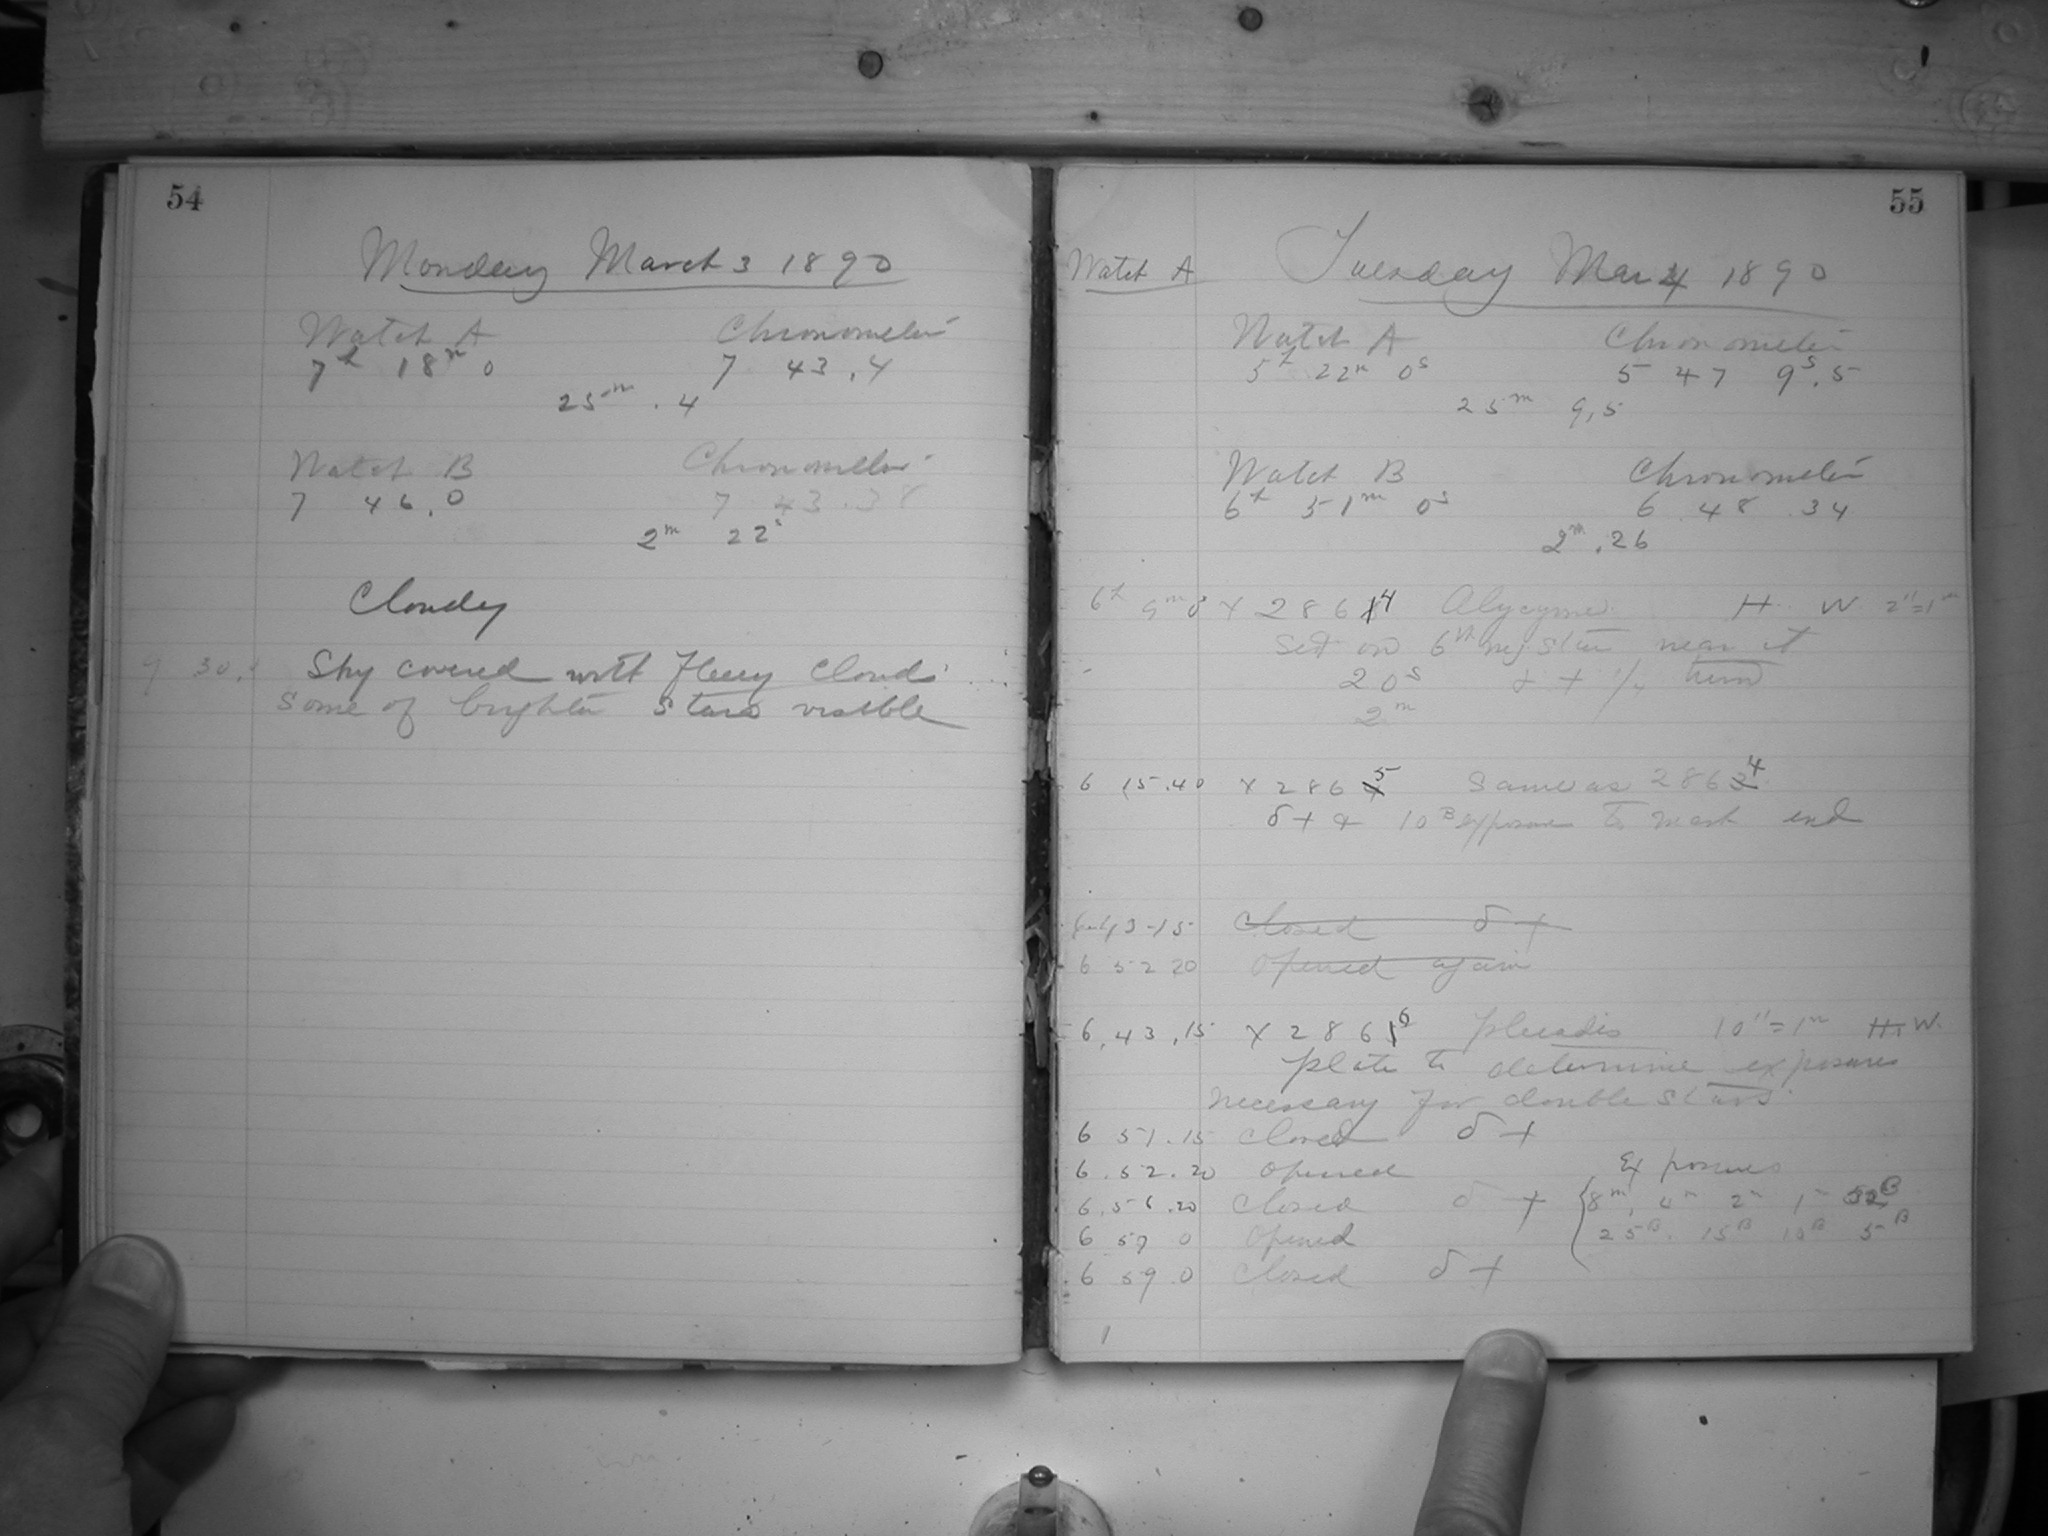 54
Monday March 3 1890
Watch A Chronometer
7h 18m 0 7 43.4
25m .4
Watch B Chronometer
7 46.0 7 43.38
2m 22s
Cloudy
30. Sky covered with Fleecy Clouds
Some of brighter Stars visible
55
Watch A Tuesday Mar 4 1890
Watch A Chronometer
5h 22m 0s 5 47 9s.5
25m 9,5
Watch B Chronometer
6h 51m 0s 6 48 34
2m .26
6h 9m 0s X 2864 Alycyone H W 2"=1m
Set on 6th mg star near it
20s
2m
6 15.40 X 2865 Same as 2864
δ + α 10B exposure to mark end
6 43 15 Closed δ +
6 52 20 Opened again
6,43,15 X 2866 pleiadis 10"=1m H.W.
plate to determine exposures
necessary for double stars
6 51.15 Closed δ +
6.52.20 opened Exposures
6.56.20 Closed δ + 8m, 4m 2m 1m 52B
25B. 15B 10B 5B
6 57 0 Opened
6 59.0 Closed δ +